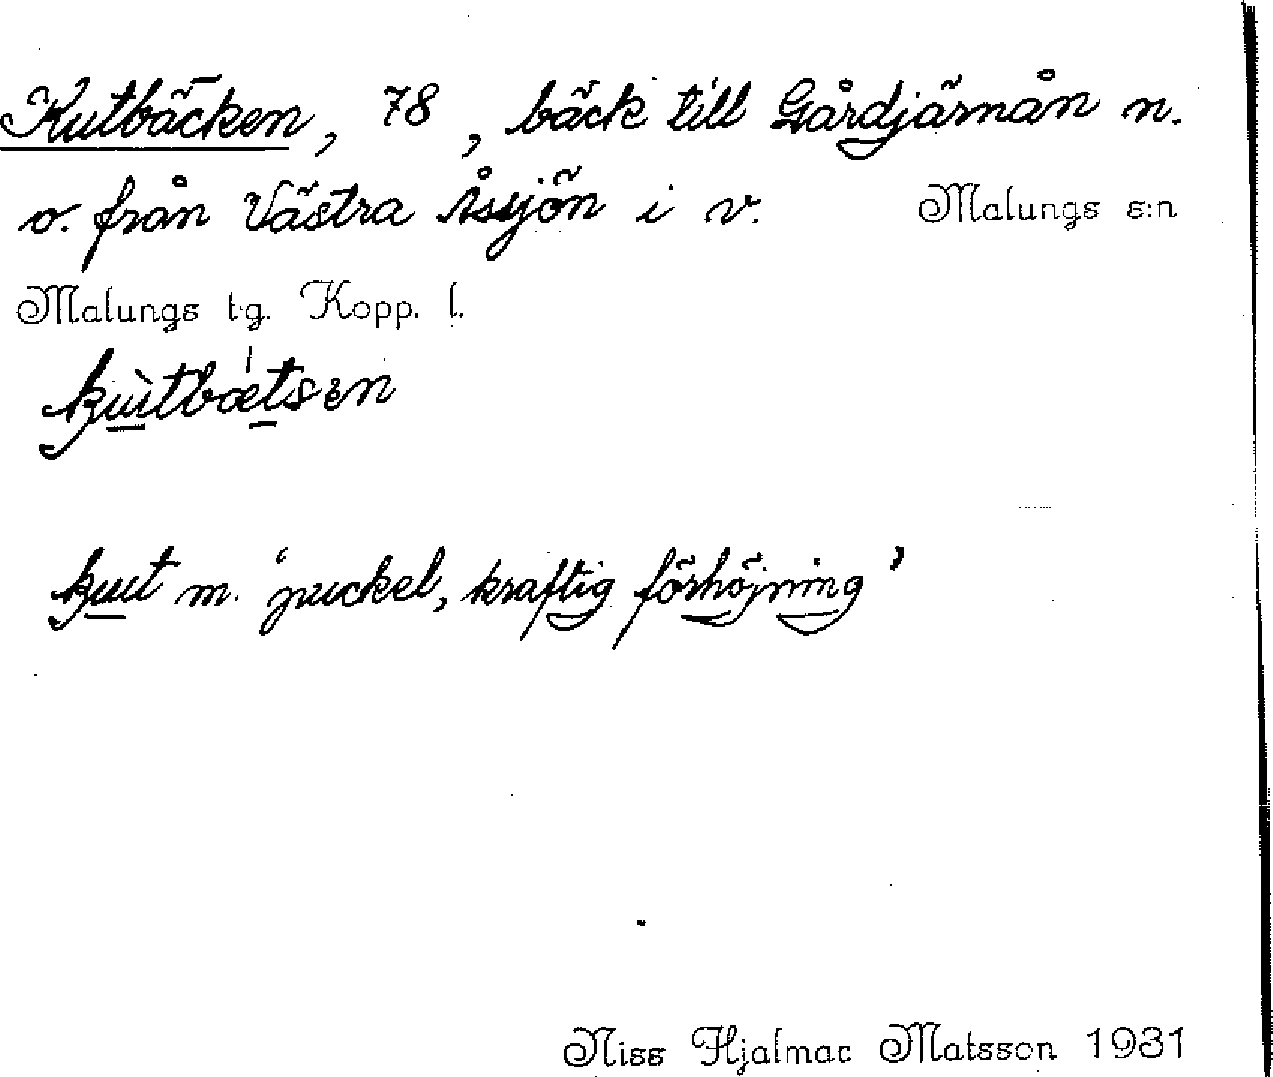 Kutbäcken, 78, bäck till Gårdjärnån n.
o. från Västra Åsjön i v. Malungs s:n
Malungs tg. Kopp. l.
kut m. 'puckel, kraftig förhöjning'
Niss Hjalmar Matsson 1931